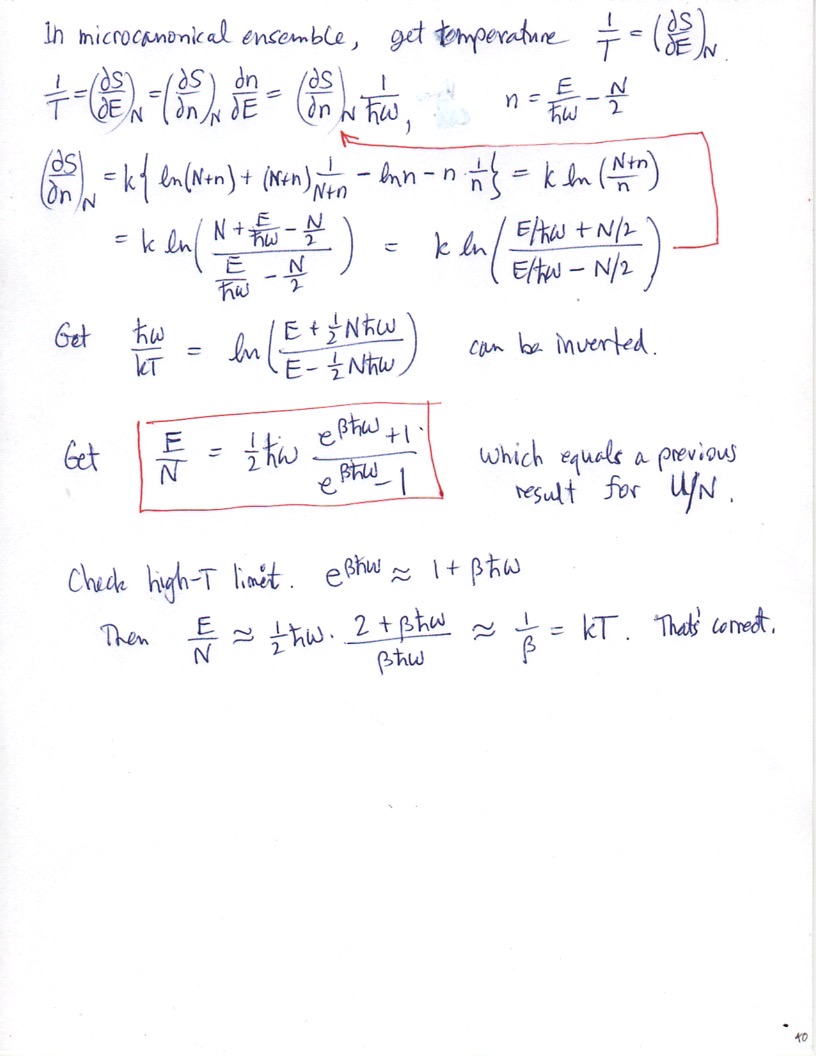 In microcanonical ensemble, get temperature 1/T = (∂S/∂E)_N
1/T = (∂S/∂E)_N = (∂S/∂n)_N dn/dE = (∂S/∂n)_N 1/ħω, n = E/ħω − N/2
(∂S/∂n)_N = k{ ln(N+n) + (N+n) 1/(N+n) − ln n − n · 1/n } = k ln((N+n)/n)
= k ln((N + E/ħω − N/2)/(E/ħω − N/2)) = k ln((E/ħω + N/2)/(E/ħω − N/2))
Get ħω/kT = ln((E + ½Nħω)/(E − ½Nħω)) can be inverted.
Get E/N = ½ħω (e^{βħω} + 1)/(e^{βħω} − 1) which equals a previous
result for U/N.
Check high-T limit. e^{βħω} ≈ 1 + βħω
Then E/N ≈ ½ħω · (2 + βħω)/(βħω) ≈ 1/β = kT. That's correct.
40